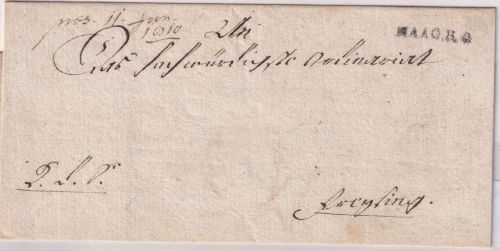 pres. 11. Jan.
1810
An
MAAG.R.4
Das Hochwürdigste Ordinariat
P. S. S.
Freysing.